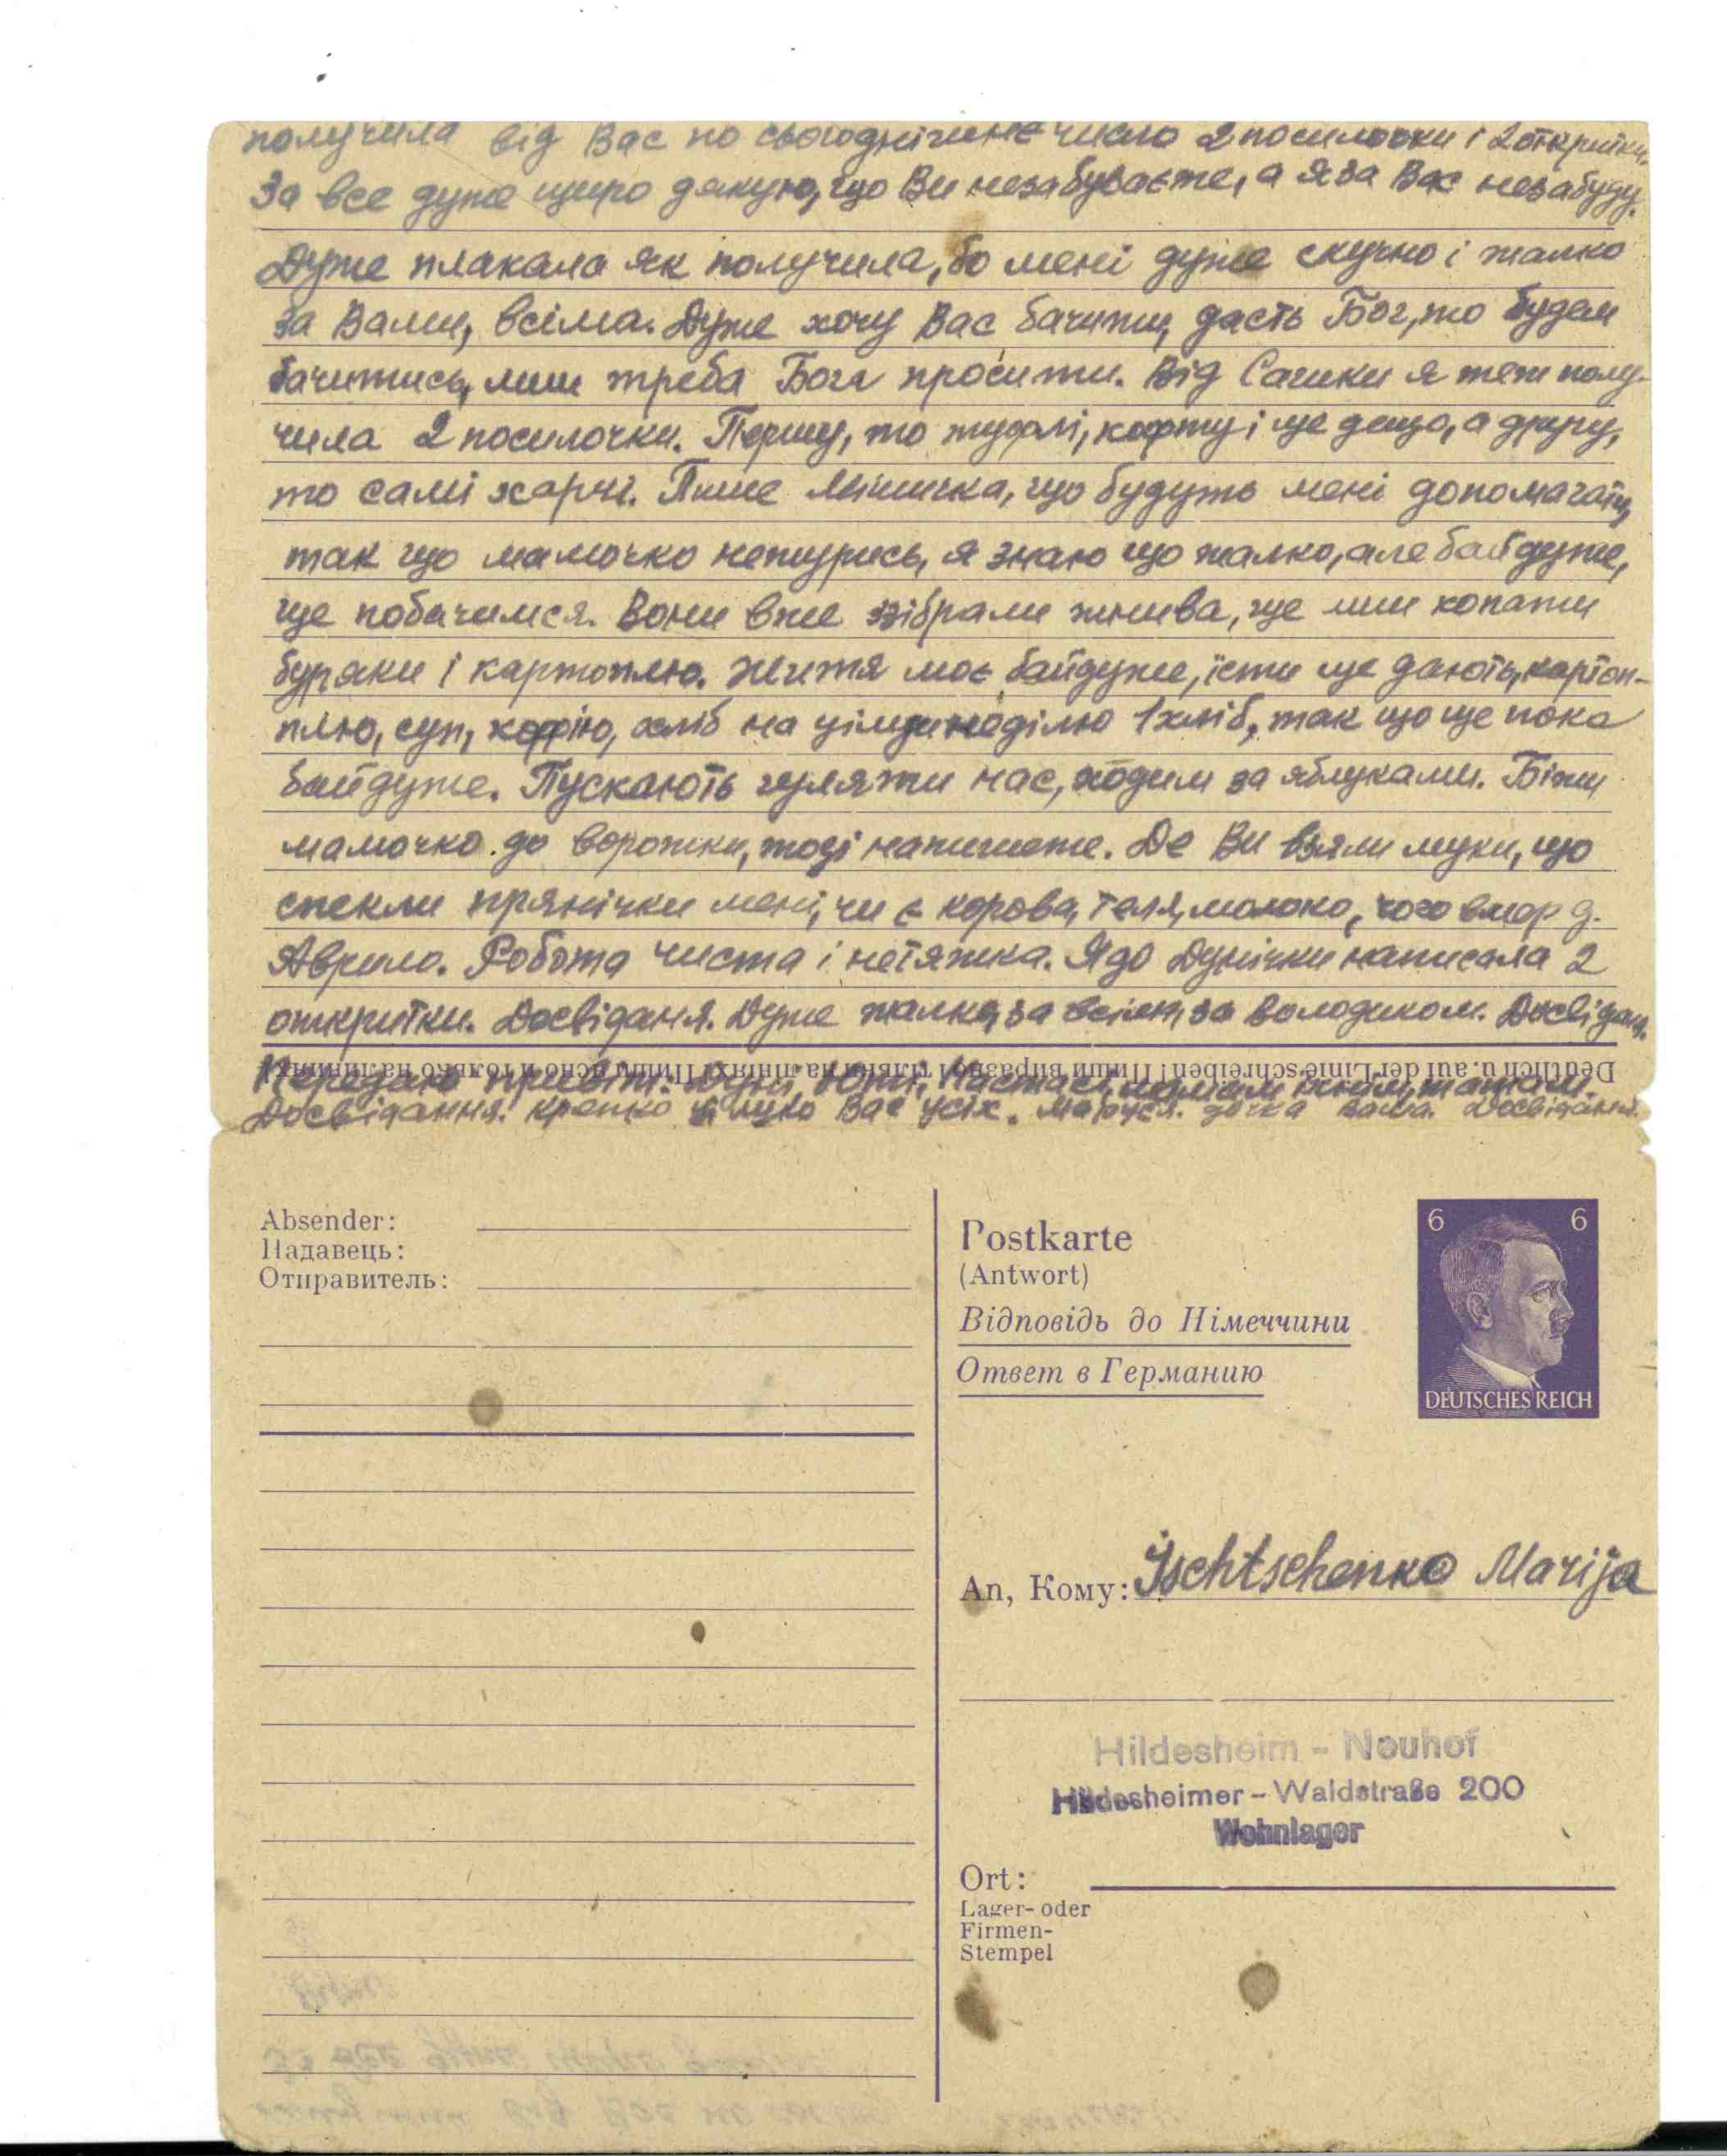 получила від Вас по сьогоднішнє число 2 посилочки і 2 откритки.
За все дуже щиро дякую, що Ви незабуваєте, а я за Вас незабуду.
Дуже плакала як получила, бо мені дуже скучно і жалко
за Вами, всіма. Дуже хочу Вас бачити, дасть Бог, то будем
бачитись, лиш треба Бога просити. Від Сашки я теж полу-
чила 2 посилочки. Першу, то туфлі, кофту і ще дещо, а другу,
то самі харчі. Пише Мішичка, що будуть мені допомагати,
так що мамочко нежурись, я знаю що жалко, але байдуже,
ще побачимся. Вони вже зібрали жнива, ще лиш копати
буряки і картоплю. Життя моє байдуже, їсти ще дають, картоп-
плю, суп, кофію, хліб на цілу неділю 1 хліб, так що ще пока
байдуже. Пускають гуляти нас, ходим за яблуками. Біжи
мамочко до ворожки, тоді напишете. Де Ви взяли муки, що
спекли прянічки мені, чи є корова, теля, молоко, чого вмер д.
Аврило. Робота чиста і нетяжка. Я до Дунічки написала 2
откритки. Досвіданя. Дуже жалко за всіми, за Володиком. Досвідан.
Deutlich u. auf der Linie schreiben! Пиши виразно і тільки на лініях! Пиши ясно и только на линиях!
Передаю привіт: Дуні, Юрі, Настасі,
Досвідання. Крепко цілую Вас усіх. Маруся. дочка Ваша. Досвідання.
Absender:
Надавець:
Отправитель:
Postkarte
(Antwort)
Відповідь до Німеччини
Ответ в Германию
6 6
DEUTSCHES REICH
An, Кому: Ischtschenko Marija
Hildesheim - Neuhof
Hildesheimer - Waldstraße 200
Wohnlager
Ort:
Lager- oder
Firmen-
Stempel